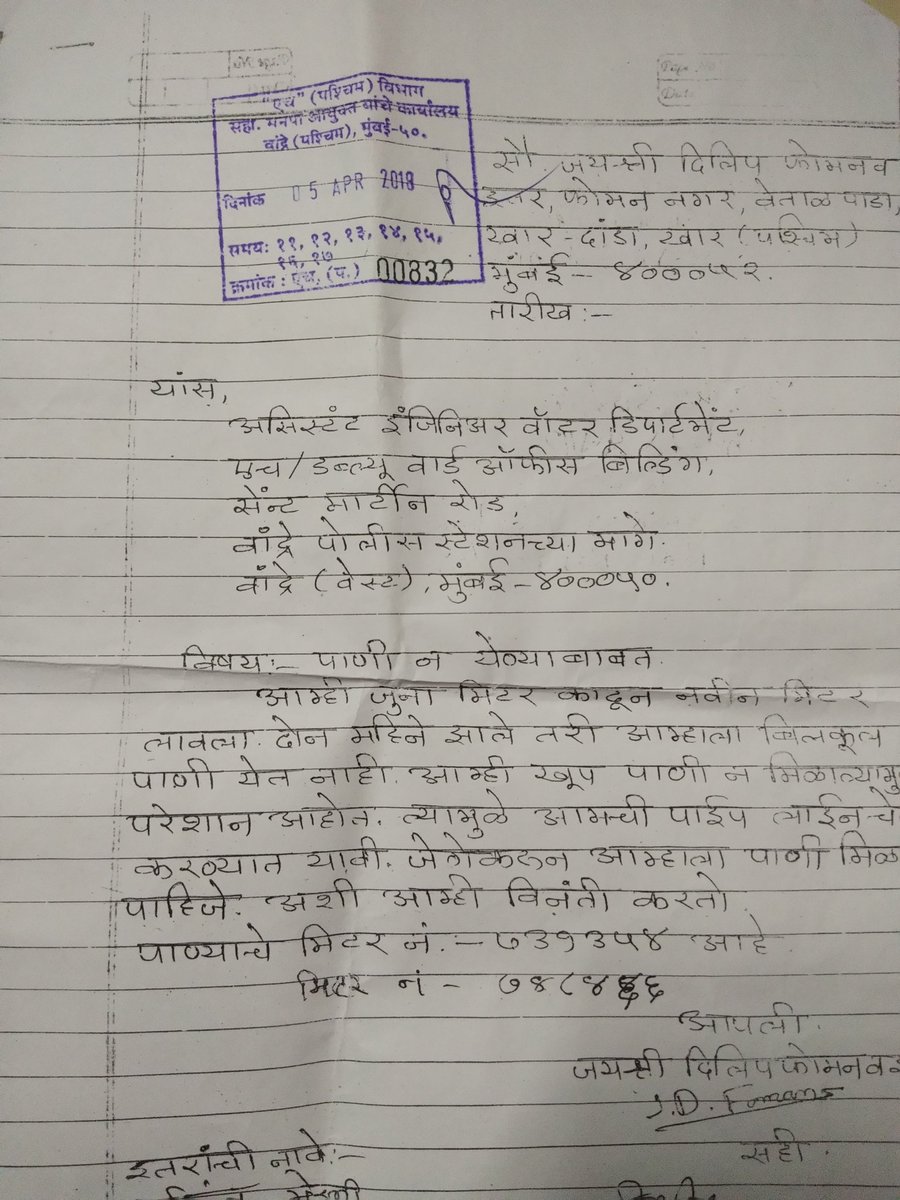 "एच" (पश्चिम) विभाग
सहा. मनपा आयुक्त यांचे कार्यालय
वांद्रे (पश्चिम), मुंबई-५०.
दिनांक 05 APR 2018
समय: ११, १२, १३, १४, १५,
१६, १७
क्रमांक : एच. (प.) 00832
सौ. जयश्री दिलिप फोमनव
इतर, फोमन नगर, वेताळ पाडा,
खार-दांडा, खार (पश्चिम)
मुंबई - ४०००५२.
तारीख :-
यांस,
असिस्टंट इंजिनिअर वॉटर डिपार्टमेंट,
एच/डब्ल्यू वार्ड ऑफीस बिल्डिंग,
सेंन्ट मार्टीन रोड,
वांद्रे पोलीस स्टेशनच्या मागे.
वांद्रे (वेस्ट), मुंबई-४०००५०.
विषय :- पाणी न येण्याबाबत.
आम्ही जुना मिटर काढून नवीन मिटर
लावला. दोन महिने झाले तरी आम्हाला बिलकूल
पाणी येत नाही. आम्ही खूप पाणी न मिळाल्यामु
परेशान आहोत. त्यामुळे आमची पाईप लाईन चे
करण्यात यावी. जेणेकरुन आम्हाला पाणी मिळ
पाहिजे. अशी आम्ही विनंती करतो.
पाण्याचे मिटर नं. - ७३१३५४ आहे.
मिटर नं - ७४८४६६
आपली.
जयश्री दिलिप फोमनव
J.D. Fomana
सही.
इतरांची नावे :-